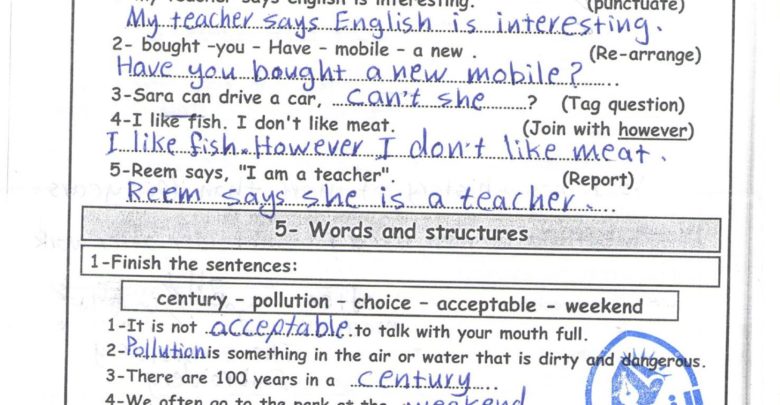 My teacher says english is interesting. (punctuate)
My teacher says English is interesting.
2- bought -you - Have - mobile - a new . (Re-arrange)
Have you bought a new mobile?
3-Sara can drive a car, can't she ? (Tag question)
4-I like fish. I don't like meat. (Join with however)
I like fish. However I don't like meat.
5-Reem says, "I am a teacher". (Report)
Reem says she is a teacher.
5- Words and structures
1-Finish the sentences:
century - pollution - choice - acceptable - weekend
1-It is not acceptable to talk with your mouth full.
2-Pollution is something in the air or water that is dirty and dangerous.
3-There are 100 years in a century
4-We often go to the park at the weekend